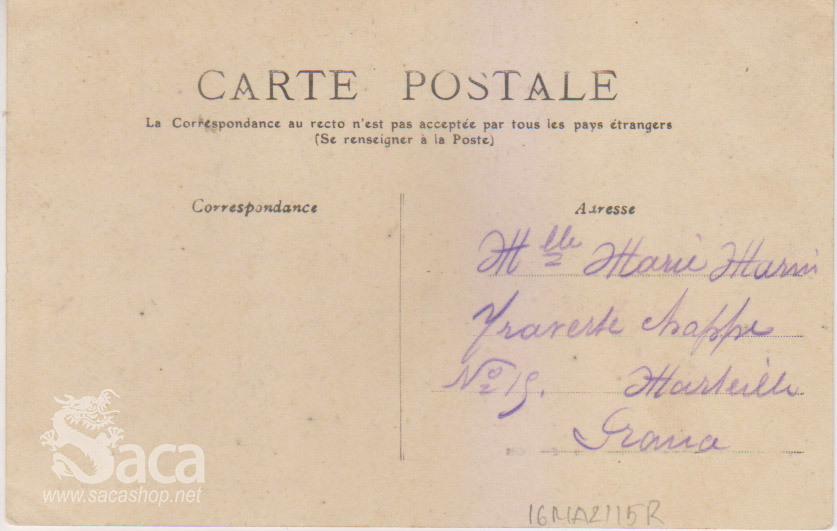 CARTE POSTALE
La Correspondance au recto n'est pas acceptée par tous les pays étrangers
(Se renseigner à la Poste)
Correspondance
Adresse
Mlle Marie Marin
Traverse Chappe
No 19. Marseille
Saca
www.sacashop.net
16MA2115R